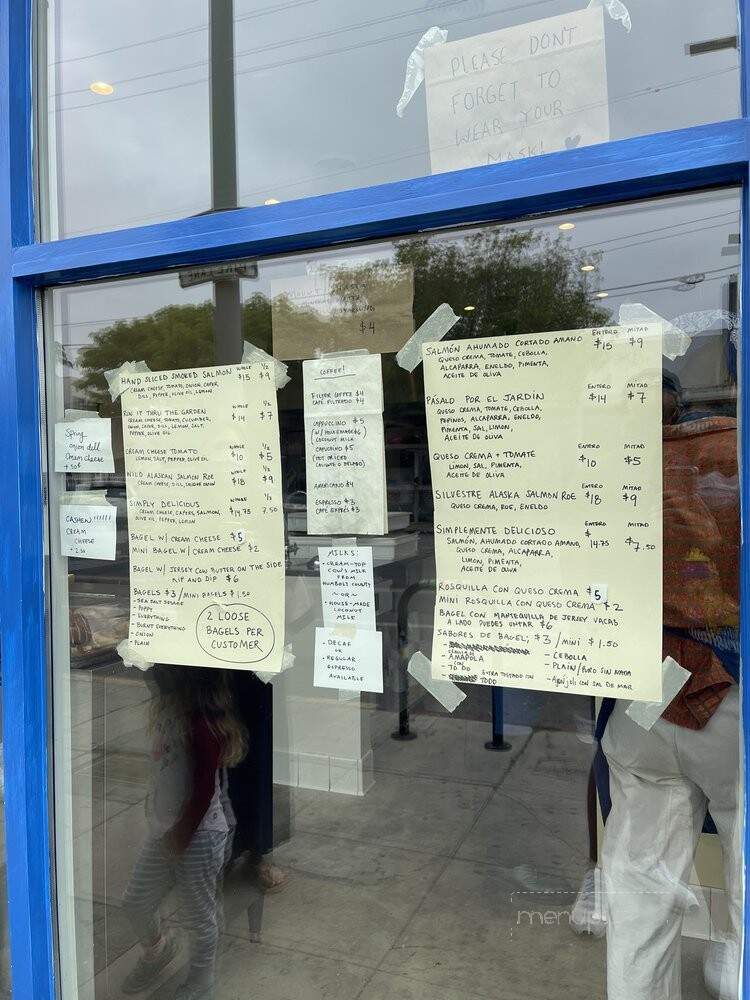 PLEASE DON'T
FORGET TO
WEAR YOUR
MASK!
$4
Spring
onion dill
cream cheese
+ 50¢
CASHEW!!!!!!
CREAM
CHEESE
+ 2.50
WHOLE 1/2
HAND SLICED SMOKED SALMON $15 $9
CREAM CHEESE, TOMATO, ONION, CAPER,
DILL, PEPPER, OLIVE OIL, LEMON
WHOLE 1/2
RUN IT THRU THE GARDEN $14 $7
CREAM CHEESE, TOMATO, CUCUMBER,
ONION, CAPER, DILL, LEMON, SALT,
PEPPER, OLIVE OIL
WHOLE 1/2
CREAM CHEESE TOMATO $10 $5
LEMON, SALT, PEPPER, OLIVE OIL
WHOLE 1/2
WILD ALASKAN SALMON ROE $18 $9
CREAM CHEESE, DILL, ONION
WHOLE 1/2
SIMPLY DELICIOUS $14.75 7.50
CREAM CHEESE, CAPERS, SALMON,
OLIVE OIL, PEPPER, LEMON
BAGEL W/ CREAM CHEESE $5
MINI BAGEL W/ CREAM CHEESE $2
BAGEL W/ JERSEY COW BUTTER ON THE SIDE
RIP AND DIP $6
BAGELS $3 / MINI BAGELS $1.50
- SEA SALT SESAME
- POPPY
- EVERYTHING
- BURNT EVERYTHING
- ONION
- PLAIN
2 LOOSE
BAGELS PER
CUSTOMER
COFFEE!
FILTER COFFEE $4
CAFÉ FILTRADO $4
CAPPUCCINO $5
(W/ HOUSEMADE $6)
COCONUT MILK
CAPUCHINO $5
(HOT OR ICED
CALIENTE O HELADO)
AMERICANO $4
ESPRESSO $3
CAFÉ EXPRÉS $3
MILKS:
- CREAM-TOP
COW'S MILK
FROM
HUMBOLT COUNTY
~ OR ~
- HOUSE-MADE
COCONUT
MILK
- DECAF
OR
- REGULAR
ESPRESSO
AVAILABLE
ENTERO MITAD
SALMÓN AHUMADO CORTADO A MANO $15 $9
QUESO CREMA, TOMATE, CEBOLLA,
ALCAPARRA, ENELDO, PIMENTA,
ACEITE DE OLIVA
ENTERO MITAD
PÁSALO POR EL JARDÍN $14 $7
QUESO CREMA, TOMATE, CEBOLLA,
PEPINOS, ALCAPARRA, ENELDO,
PIMENTA, SAL, LIMON,
ACEITE DE OLIVA
ENTERO MITAD
QUESO CREMA + TOMATE $10 $5
LIMON, SAL, PIMENTA,
ACEITE DE OLIVA
ENTERO MITAD
SILVESTRE ALASKA SALMON ROE $18 $9
QUESO CREMA, ROE, ENELDO
ENTERO MITAD
SIMPLEMENTE DELICIOSO $14.75 $7.50
SALMÓN, AHUMADO CORTADO A MANO,
QUESO CREMA, ALCAPARRA,
LIMON, PIMENTA,
ACEITE DE OLIVA
ROSQUILLA CON QUESO CREMA $5
MINI ROSQUILLA CON QUESO CREMA $2
BAGEL CON MANTEQUILLA DE JERSEY VACAS
A LADO PUEDES UNTAR $6
SABORES DE BAGEL; $3 / MINI $1.50
- AMAPOLA
- TODO
- EXTRA TOSTADO CON TODO
- CEBOLLA
- PLAIN/PURO SIN NADA
- AJONJOLI CON SAL DE MAR
menu